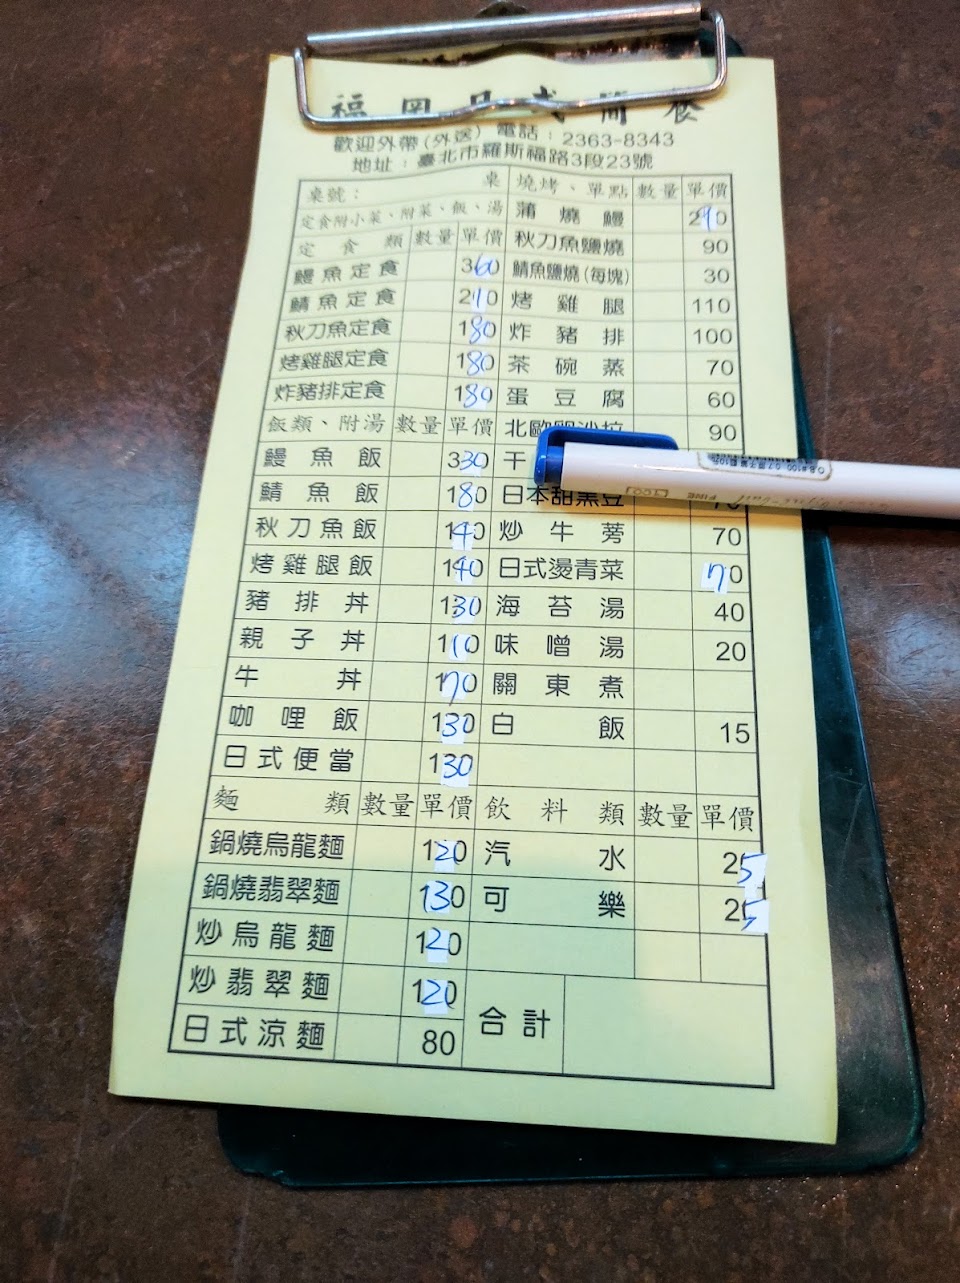 福岡日式簡餐
歡迎外帶(外送) 電話：2363-8343
地址：臺北市羅斯福路3段23號
桌號： 桌
定食附小菜、附菜、飯、湯
定食類 數量 單價
鰻魚定食 360
鯖魚定食 210
秋刀魚定食 180
烤雞腿定食 180
炸豬排定食 180
飯類、附湯 數量 單價
鰻魚飯 330
鯖魚飯 180
秋刀魚飯 140
烤雞腿飯 140
豬排丼 130
親子丼 110
牛丼 170
咖哩飯 130
日式便當 130
麵類 數量 單價
鍋燒烏龍麵 120
鍋燒翡翠麵 130
炒烏龍麵 120
炒翡翠麵 120
日式涼麵 80
燒烤、單點 數量 單價
蒲燒鰻 290
秋刀魚鹽燒 90
鯖魚鹽燒(每塊) 30
烤雞腿 110
炸豬排 100
茶碗蒸 70
蛋豆腐 60
北歐卵沙拉 90
干
日本甜黑豆 70
炒牛蒡 70
日式燙青菜 70
海苔湯 40
味噌湯 20
關東煮
白飯 15
飲料類 數量 單價
汽水 25
可樂 25
合計